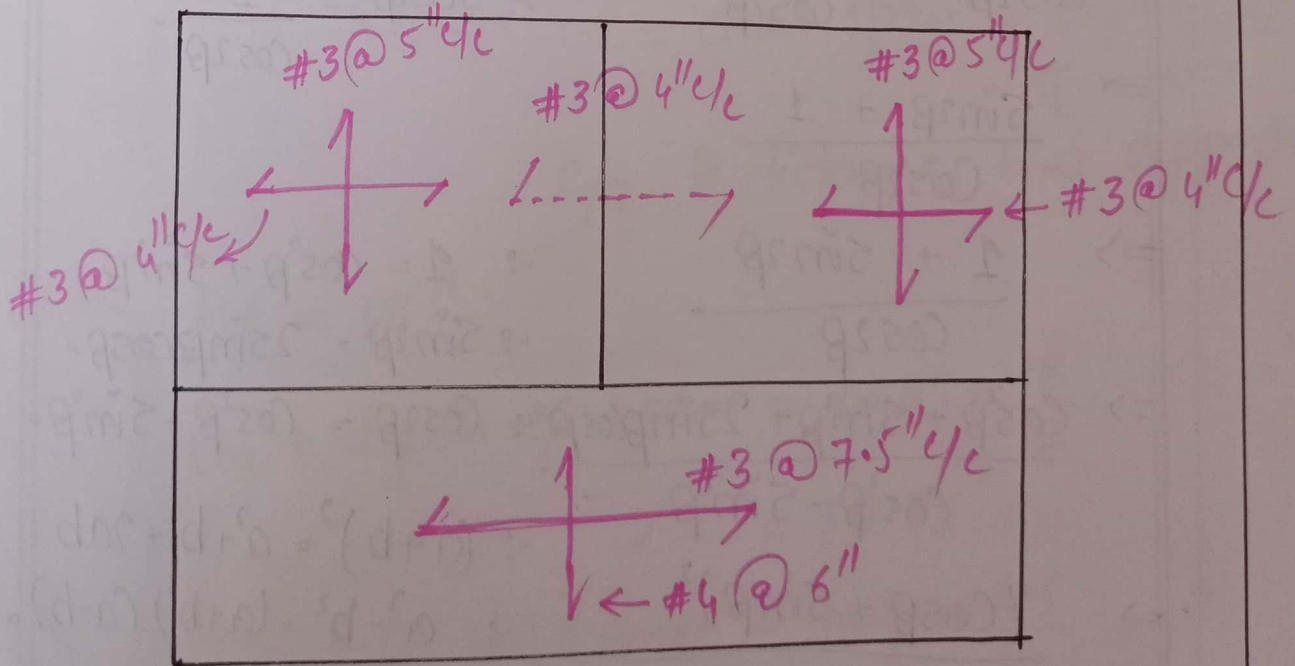 #3 @ 5"c/c
#3 @ 4"c/c
#3 @ 5"c/c
#3 @ 4"c/c
#3 @ 4"c/c
#3 @ 7.5"c/c
#4 @ 6"